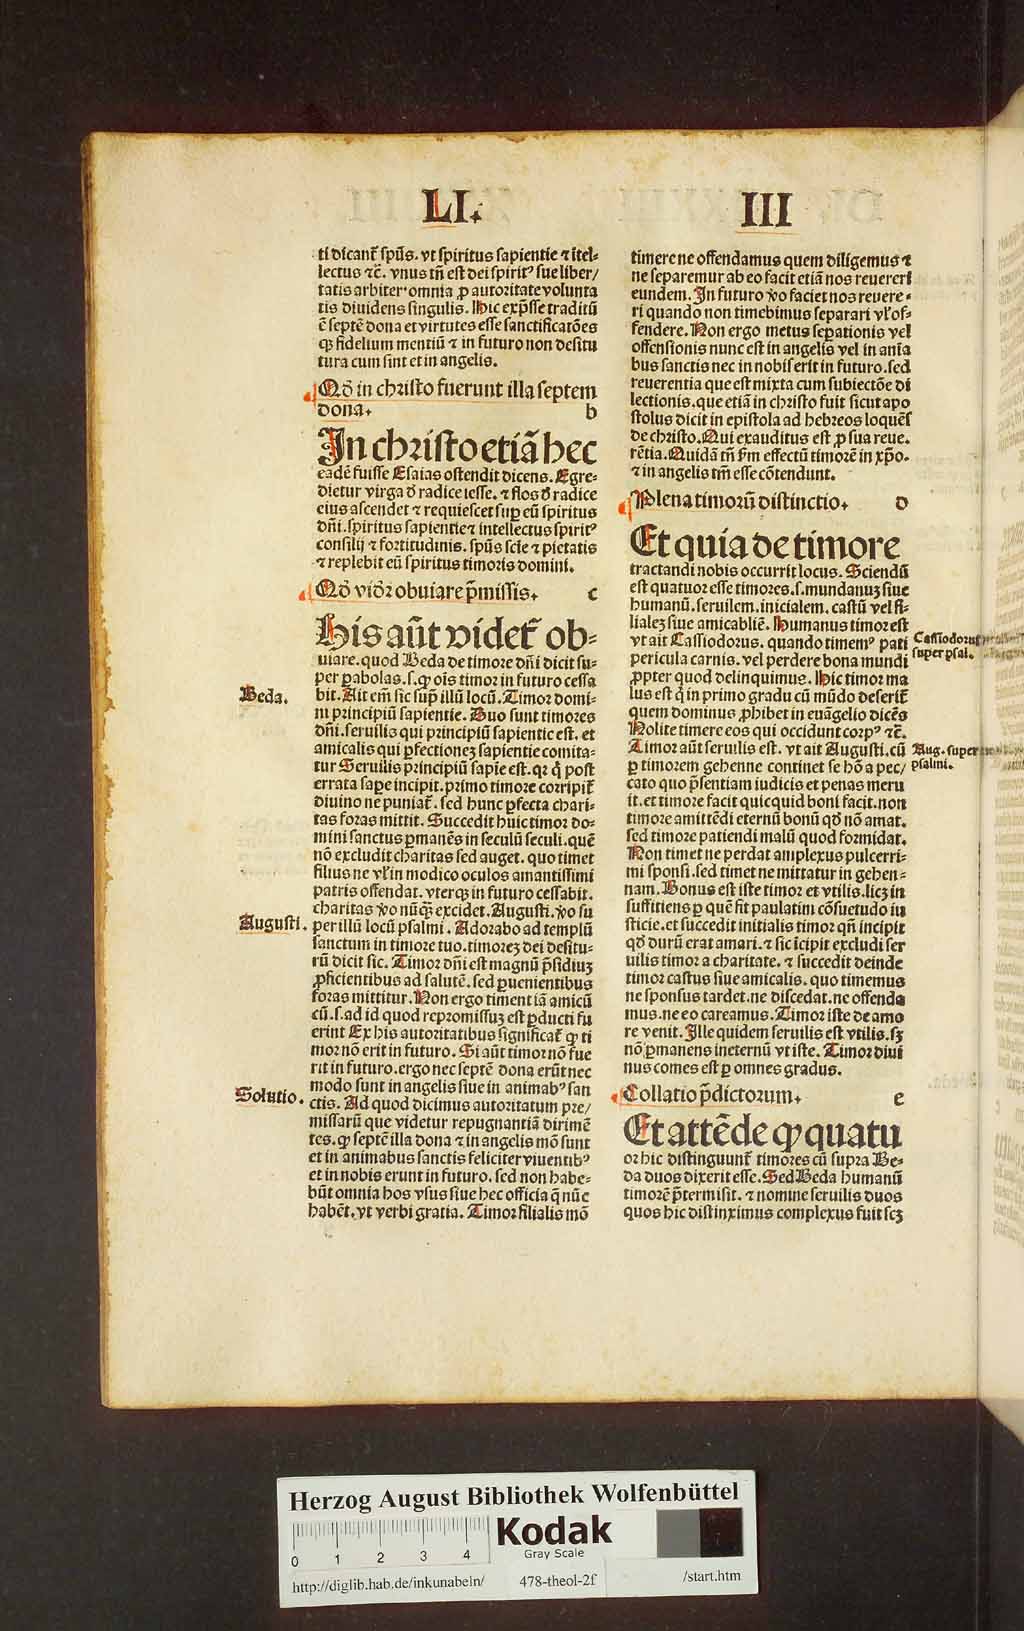 LI.
III
ti dicant᷑ spūs. vt spiritus sapientie ⁊ ītel-
lectus ⁊c̄. vnus tn̄ est dei spiritꝰ sue liber/
tatis arbiter omnia ꝓ autoritate volunta
tis diuidens singulis. Hic exp̄sse traditū
ē septē dona et virtutes esse sanctificatōes
qꝫ fidelium mentiū ⁊ in futuro non desitu
tura cum sint et in angelis.
Qd̄ in christo fuerunt illa septem
dona. b
In christo etiā hec
eadē fuisse Esaias ostendit dicens. Egre-
dietur virga d̄ radice iesse. ⁊ flos d̄ radice
eius ascendet ⁊ requiescet suꝑ eū spiritus
dn̄i. spiritus sapientie ⁊ intellectus spiritꝰ
consilij ⁊ fortitudinis. spūs scīe ⁊ pietatis
⁊ replebit eū spiritus timoris domini.
Qd̄ vid̄r̄ obuiare p̄missis. c
His aūt videt᷑ ob-
uiare. quod Beda de timore dn̄i dicit su-
per ꝑabolas. s. ꝙ oīs timor in futuro cessa
Beda.
bit. Ait em̄ sic suꝑ illū locū. Timor domi-
ni principiū sapientie. Duo sunt timores
dn̄i. seruilis qui principiū sapientie est. et
amicalis qui ꝑfectioneꝫ sapientie comita-
tur Seruilis principiū sapīe est. qꝛ q̄ post
errata saꝑe incipit. primo timore corripit᷑
diuino ne puniat᷑. sed hunc ꝑfecta chari-
tas foras mittit. Succedit huic timor do-
mini sanctus ꝑmanēs in seculū seculi. quē
nō excludit charitas sed auget. quo timet
filius ne vl̓ in modico oculos amantissimi
patris offendat. vterqꝫ in futuro cessabit.
charitas v̓o nūqꝫ excidet. Augusti. v̓o su
Augusti.
per illū locū psalmi. Adorabo ad templū
sanctum in timore tuo. timoreꝫ dei desitu-
rū dicit sic. Timor dn̄i est magnū p̄sidiuꝫ
ꝓficientibus ad salutē. sed ꝑuenientibus
foras mittitur. Non ergo timent iā amicū
cū. s. ad id quod repromissuꝫ est ꝑducti fu
erint Ex his autoritatibus significat᷑ ꝙ ti
mor nō erit in futuro. Si aūt timor nō fue
rit in futuro. ergo nec septē dona erūt nec
modo sunt in angelis siue in animabꝰ san
Solutio.
ctis. Ad quod dicimus autoritatum pre/
missarū que videtur repugnantiā dirimē
tes. ꝙ septē illa dona ⁊ in angelis mō sunt
et in animabus sanctis feliciter viuentibꝰ
et in nobis erunt in futuro. sed non habe-
būt omnia hos vsus siue hec officia q̄ nūc
habēt. vt verbi gratia. Timor filialis mō
timere ne offendamus quem diligemus ⁊
ne separemur ab eo facit etiā nos reuereri
eundem. In futuro v̓o faciet nos reuere-
ri quando non timebimus separari vl̓ of-
fendere. Non ergo metus seꝑationis vel
offensionis nunc est in angelis vel in aīa
bus sanctis nec in nobis erit in futuro. sed
reuerentia que est mixta cum subiectōe di
lectionis. que etiā in christo fuit sicut apo
stolus dicit in epistola ad hebreos loquēs
de christo. Qui exauditus est ꝓ sua reue.
rētia. Quidā tn̄ s̄m effectū timorē in xp̄o.
⁊ in angelis tm̄ esse cōtendunt.
Plena timorū distinctio. d
Et quia de timore
tractandi nobis occurrit locus. Sciendū
est quatuor esse timores. s. mundanuꝫ siue
humanū. seruilem. inicialem. castū vel fi-
lialeꝫ siue amicabilē. Humanus timor est
vt ait Cassiodorus. quando timemꝰ pati
Cassiodorus
super psal.
pericula carnis. vel perdere bona mundi
ꝓpter quod delinquimus. Hic timor ma
lus est q̄ in primo gradu cū mūdo deserit᷑
quem dominus ꝓhibet in euāgelio dicēs
Nolite timere eos qui occidunt corpꝰ ⁊c̄.
Timor aūt seruilis est. vt ait Augusti. cū
Aug. super
psalmi.
ꝑ timorem gehenne continet se hō a pec/
cato quo p̄sentiam iudicis et penas meru
it. et timore facit quicquid boni facit. non
timore amittēdi eternū bonū qd̄ nō amat.
sed timore patiendi malū quod formidat.
Non timet ne perdat amplexus pulcerri-
mi sponsi. sed timet ne mittatur in gehen-
nam. Bonus est iste timor et vtilis. licꝫ in
suffitiens ꝑ quē fit paulatim cōsuetudo iu
sticie. et succedit initialis timor qn̄ incipit
qd̄ durū erat amari. ⁊ sic īcipit excludi ser
uilis timor a charitate. ⁊ succedit deinde
timor castus siue amicalis. quo timemus
ne sponsus tardet. ne discedat. ne offenda
mus. ne eo careamus. Timor iste de amo
re venit. Ille quidem seruilis est vtilis. sꝫ
nō ꝑmanens in eternū vt iste. Timor diui
nus comes est ꝑ omnes gradus.
Collatio p̄dictorum. e
Et attēde ꝙ quatu
or hic distinguunt᷑ timores cū supra Be-
da duos dixerit esse. Sed Beda humanū
timorē p̄termisit. ⁊ nomine seruilis duos
quos hic distinximus complexus fuit scꝫ
Herzog August Bibliothek Wolfenbüttel
0 1 2 3 4
Kodak
Gray Scale
http://diglib.hab.de/inkunabeln/ 478-theol-2f /start.htm